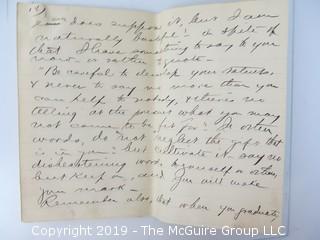 does suppose it, but I am
naturally bashful! In spite of
that I have something to say to you
now - or rather quote -
"Be careful to develop your talents,
& never to say no more than you
can help to nobody, & there's no
telling at the present what you may
not come to be fit for" In other
words, do "not neglect the gift that
is in you" but cultivate it - say no
disheartening words to yourself or others,
but keep on, and you will make
your mark -
Remember also, that when you graduate,
Copyright 2019 - The McGuire Group LLC